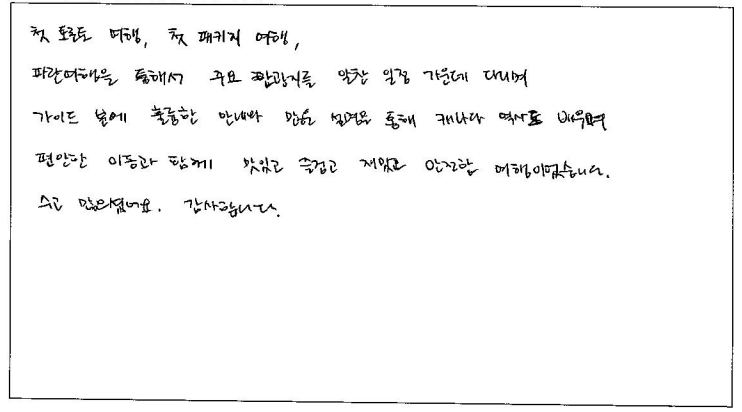 첫 토론토 여행, 첫 패키지 여행,
파란여행을 통해서 주요 관광지를 알찬 일정 가운데 다니며
가이드 분에 훌륭한 안내와 많은 설명을 통해 캐나다 역사도 배우며
편안한 이동과 함께 맛있고 즐겁고 재밌고 안전한 여행이었습니다.
수고 많으셨어요. 감사합니다.